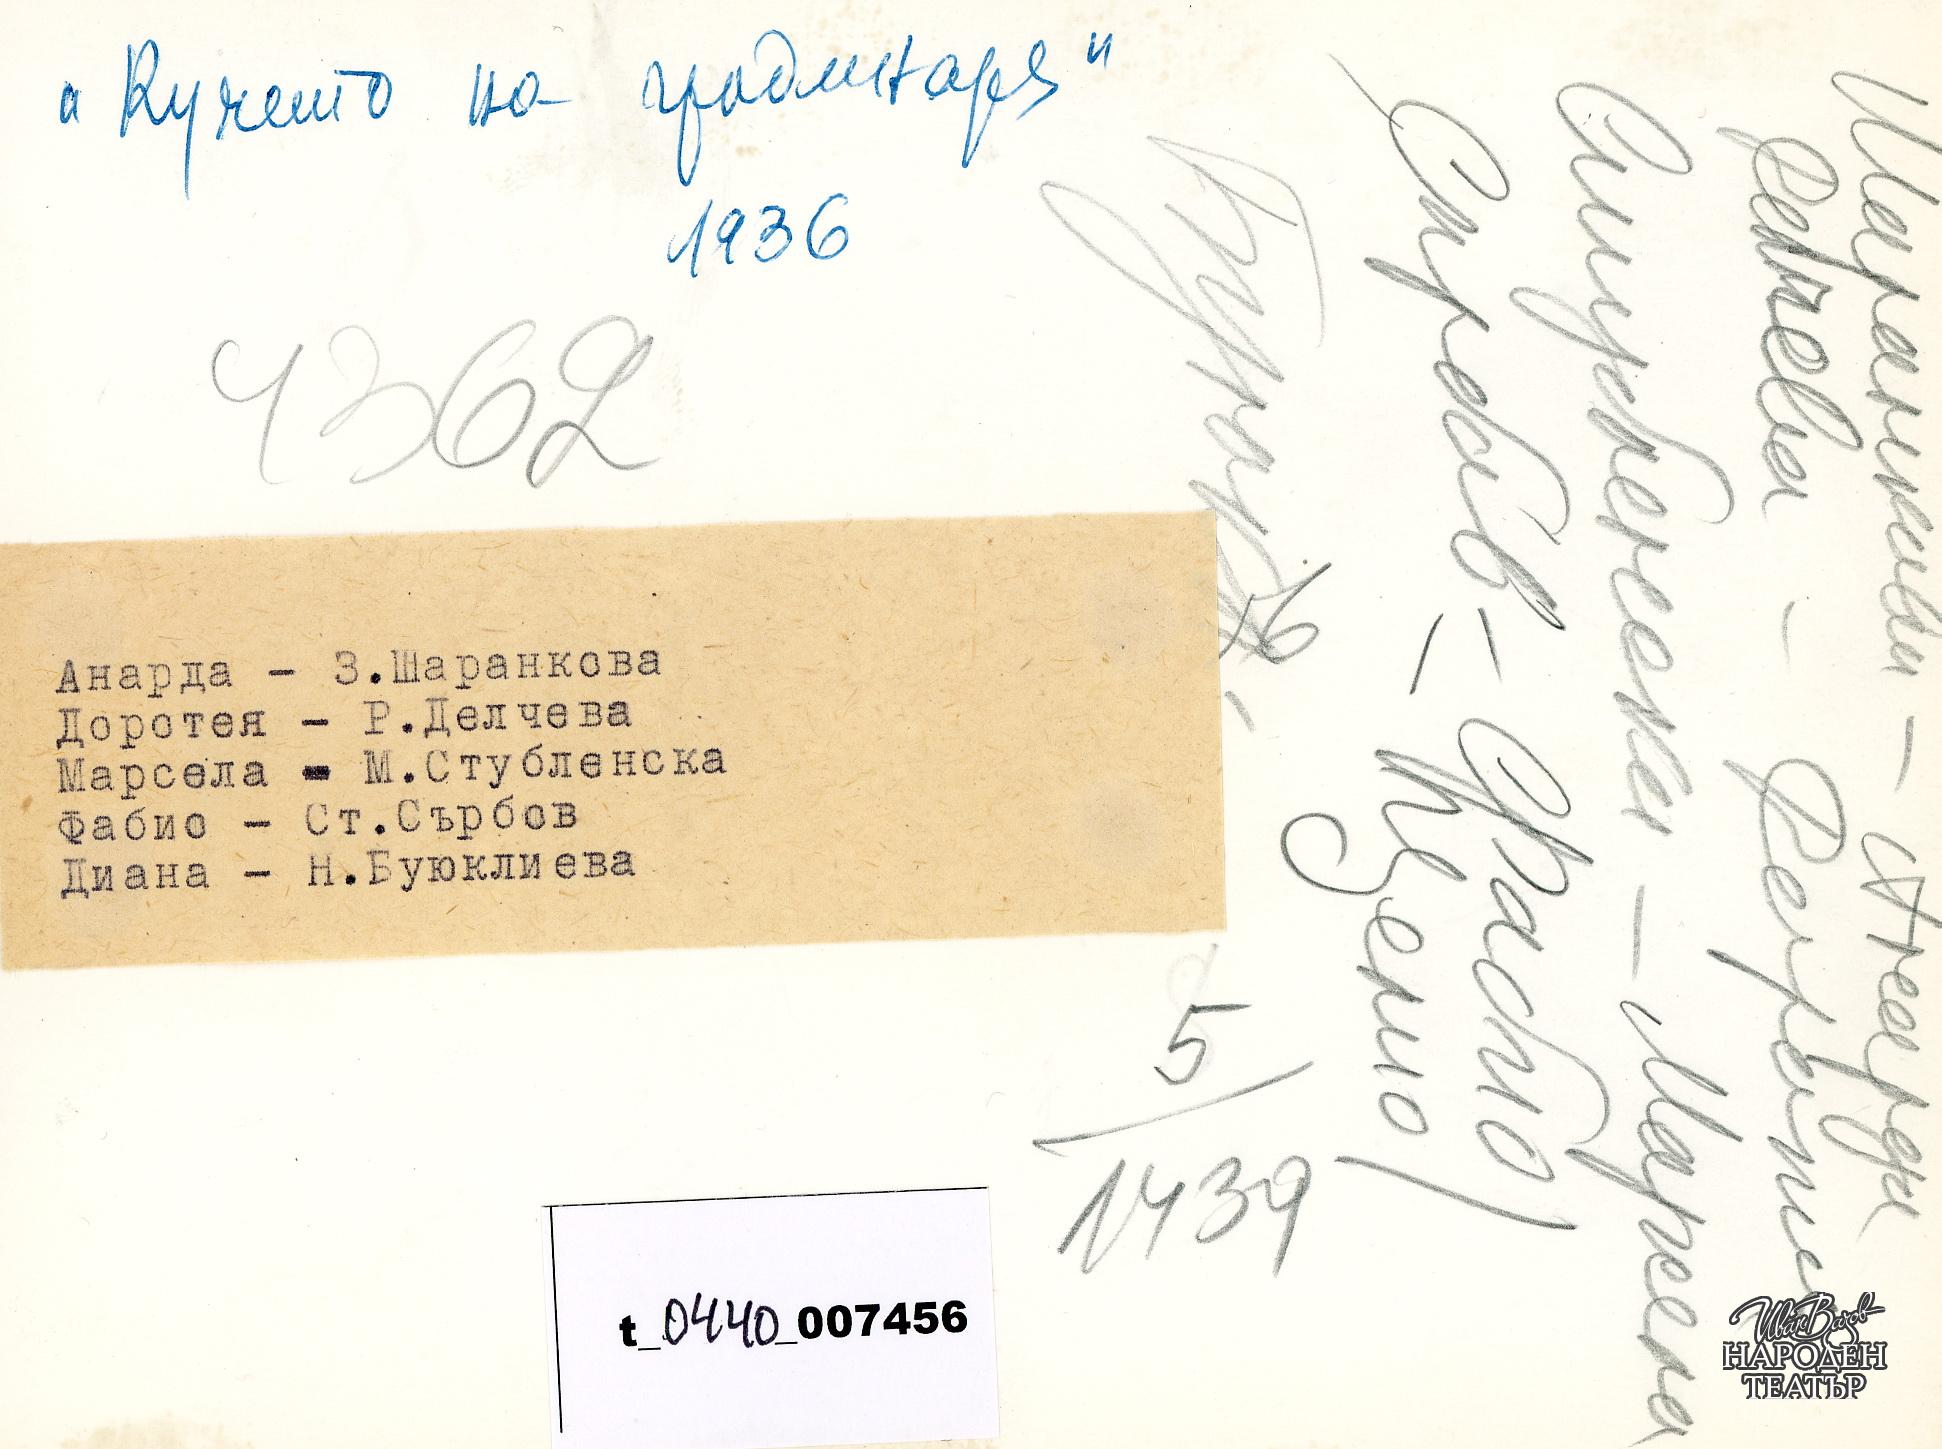 "Кучето на градинаря"
1936
4362
Анарда - З.Шаранкова
Доротея - Р.Делчева
Марсела - М.Стубленска
Фабио - Ст.Сърбов
Диана - Н.Буюклиева
Шаранкова - Анарда
Делчева - Доротея
Стубленска - Марсела
Сърбов - Фабио
5/1439
t_0440_007456
Иван Вазов
НАРОДЕН
ТЕАТЪР